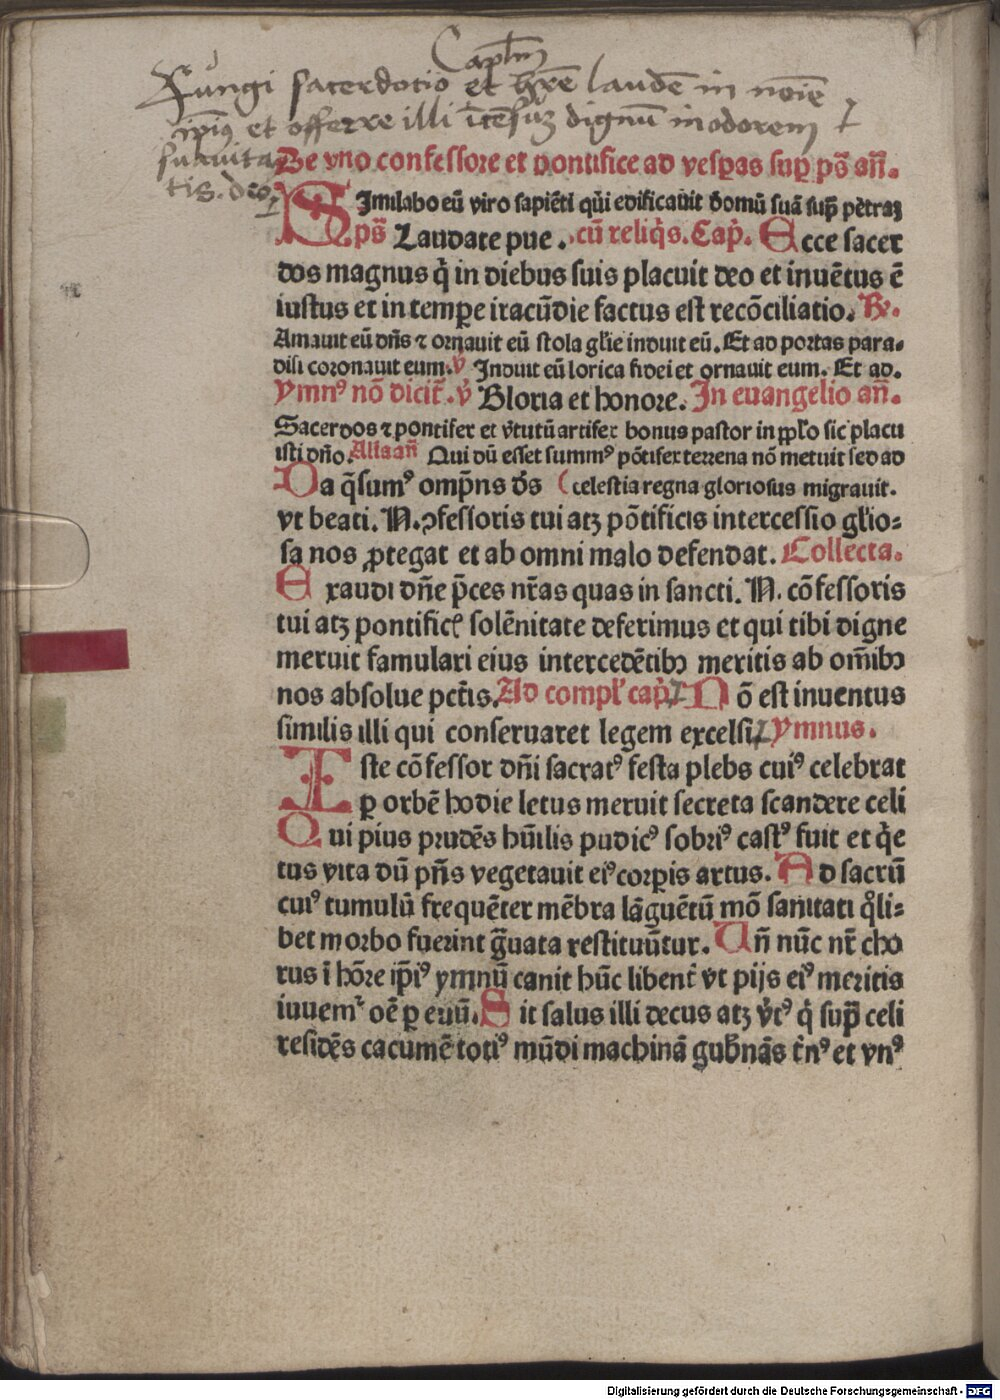 Capłm
Fungi sacerdotio et hr̄e laudē in noīe
ip̄iꝰ et offerre illi īcēsuꝫ dignū in odorem
suauita
tis. deo
De vno confessore et pontifice ad vesp̲as sup̲ ps̄ añ.
SImilabo eū viro sapiēti qui edificauit domū suā sup̲ petraꝫ
ps̄ Laudate pue. cū reliqͥs. Cap̄. Ecce sacer
dos magnus qͥ in diebus suis placuit deo et inuētus ē
iustus et in temp̲e iracūdie factus est recōciliatio. ℟.
Amauit eū dn̄s ⁊ ornauit eū stola gl̄ie induit eū. Et ad portas para-
disi coronauit eum. ℣ Induit eū lorica fidei et ornauit eum. Et ad.
Ymnꝰ nō dicit̄. ℣ Gloria et honore. In euangelio añ.
Sacerdos ⁊ pontifex et v̄tutū artifex bonus pastor in pp̄lo sic placu
isti dn̄o. Alia añ Qui dū esset summꝰ pōtifex terrena nō metuit sed ad
Da q̄sumꝰ omp̄ns ds̄ ( celestia regna gloriosus migrauit.
vt beati. N. ꝯfessoris tui atꝫ pōtificis intercessio gl̄io⸗
sa nos ꝓtegat et ab omni malo defendat. Collecta.
Exaudi dn̄e p̄ces nr̄as quas in sancti. N. cōfessoris
tui atꝫ pontificꝭ solēnitate deferimus et qui tibi digne
meruit famulari eius intercedētibꝫ meritis ab om̄ibꝫ
nos absolue pct̄is. Ad compl̄ cap̄. Nō est inuentus
similis illi qui conseruaret legem excelsi. Ymnus.
Iste cōfessor dn̄i sacratꝰ festa plebs cuiꝰ celebrat
ꝑ orbē hodie letus meruit secreta scandere celi
Qui pius prudēs hūilis pudicꝰ sobriꝰ castꝰ fuit et qͥe
tus vita dū pn̄s vegetauit eiꝰ corp̲is artus. Ad sacrū
cuiꝰ tumulū frequēter mēbra lāguētū mō sanitati qͦli⸗
bet morbo fuerint gͣuata restituūtur. Vn̄ nūc nr̄ cho
rus ī hōre ip̄iꝰ ymnū canit hūc libent̄ vt pijs eiꝰ meritis
iuuemᷣ oē ꝑ euū. Sit salus illi decus atꝫ v̄tꝰ qͥ sup̲ celi
residēs cacumē totiꝰ mūdi machinā gub̄nās t̄nꝰ et vnꝰ
Digitalisierung gefördert durch die Deutsche Forschungsgemeinschaft - DFG